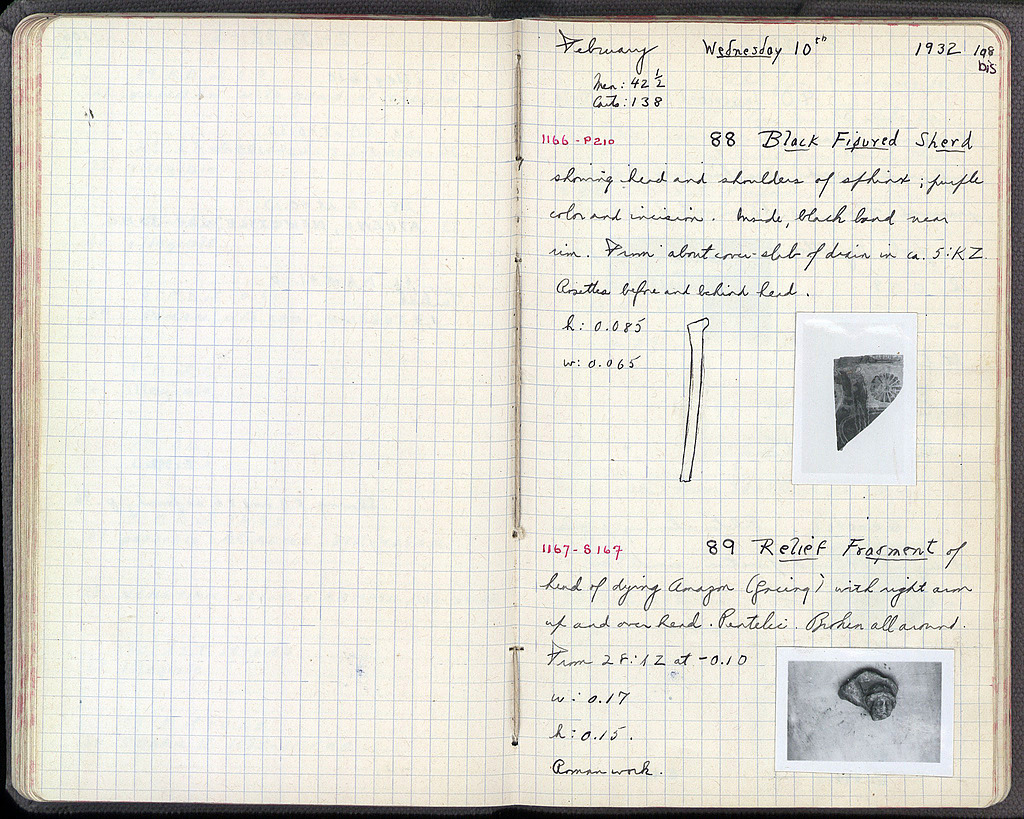 February Wednesday 10th 1932 198 bis
Men: 42 1/2
Carts: 138
1166 - P210 88 Black Figured Sherd
showing head and shoulders of sphinx; purple
color and incision. Inside, black band near
rim. From about cover-slab of drain in ca. 5:KZ.
Rosettes before and behind head.
h: 0.085
w: 0.065
1167 - S167 89 Relief Fragment of
head of dying Amazon (facing) with right arm
up and over head. Pentelic. Broken all around.
From 28:IZ at -0.10
w: 0.17
h: 0.15.
Roman work.